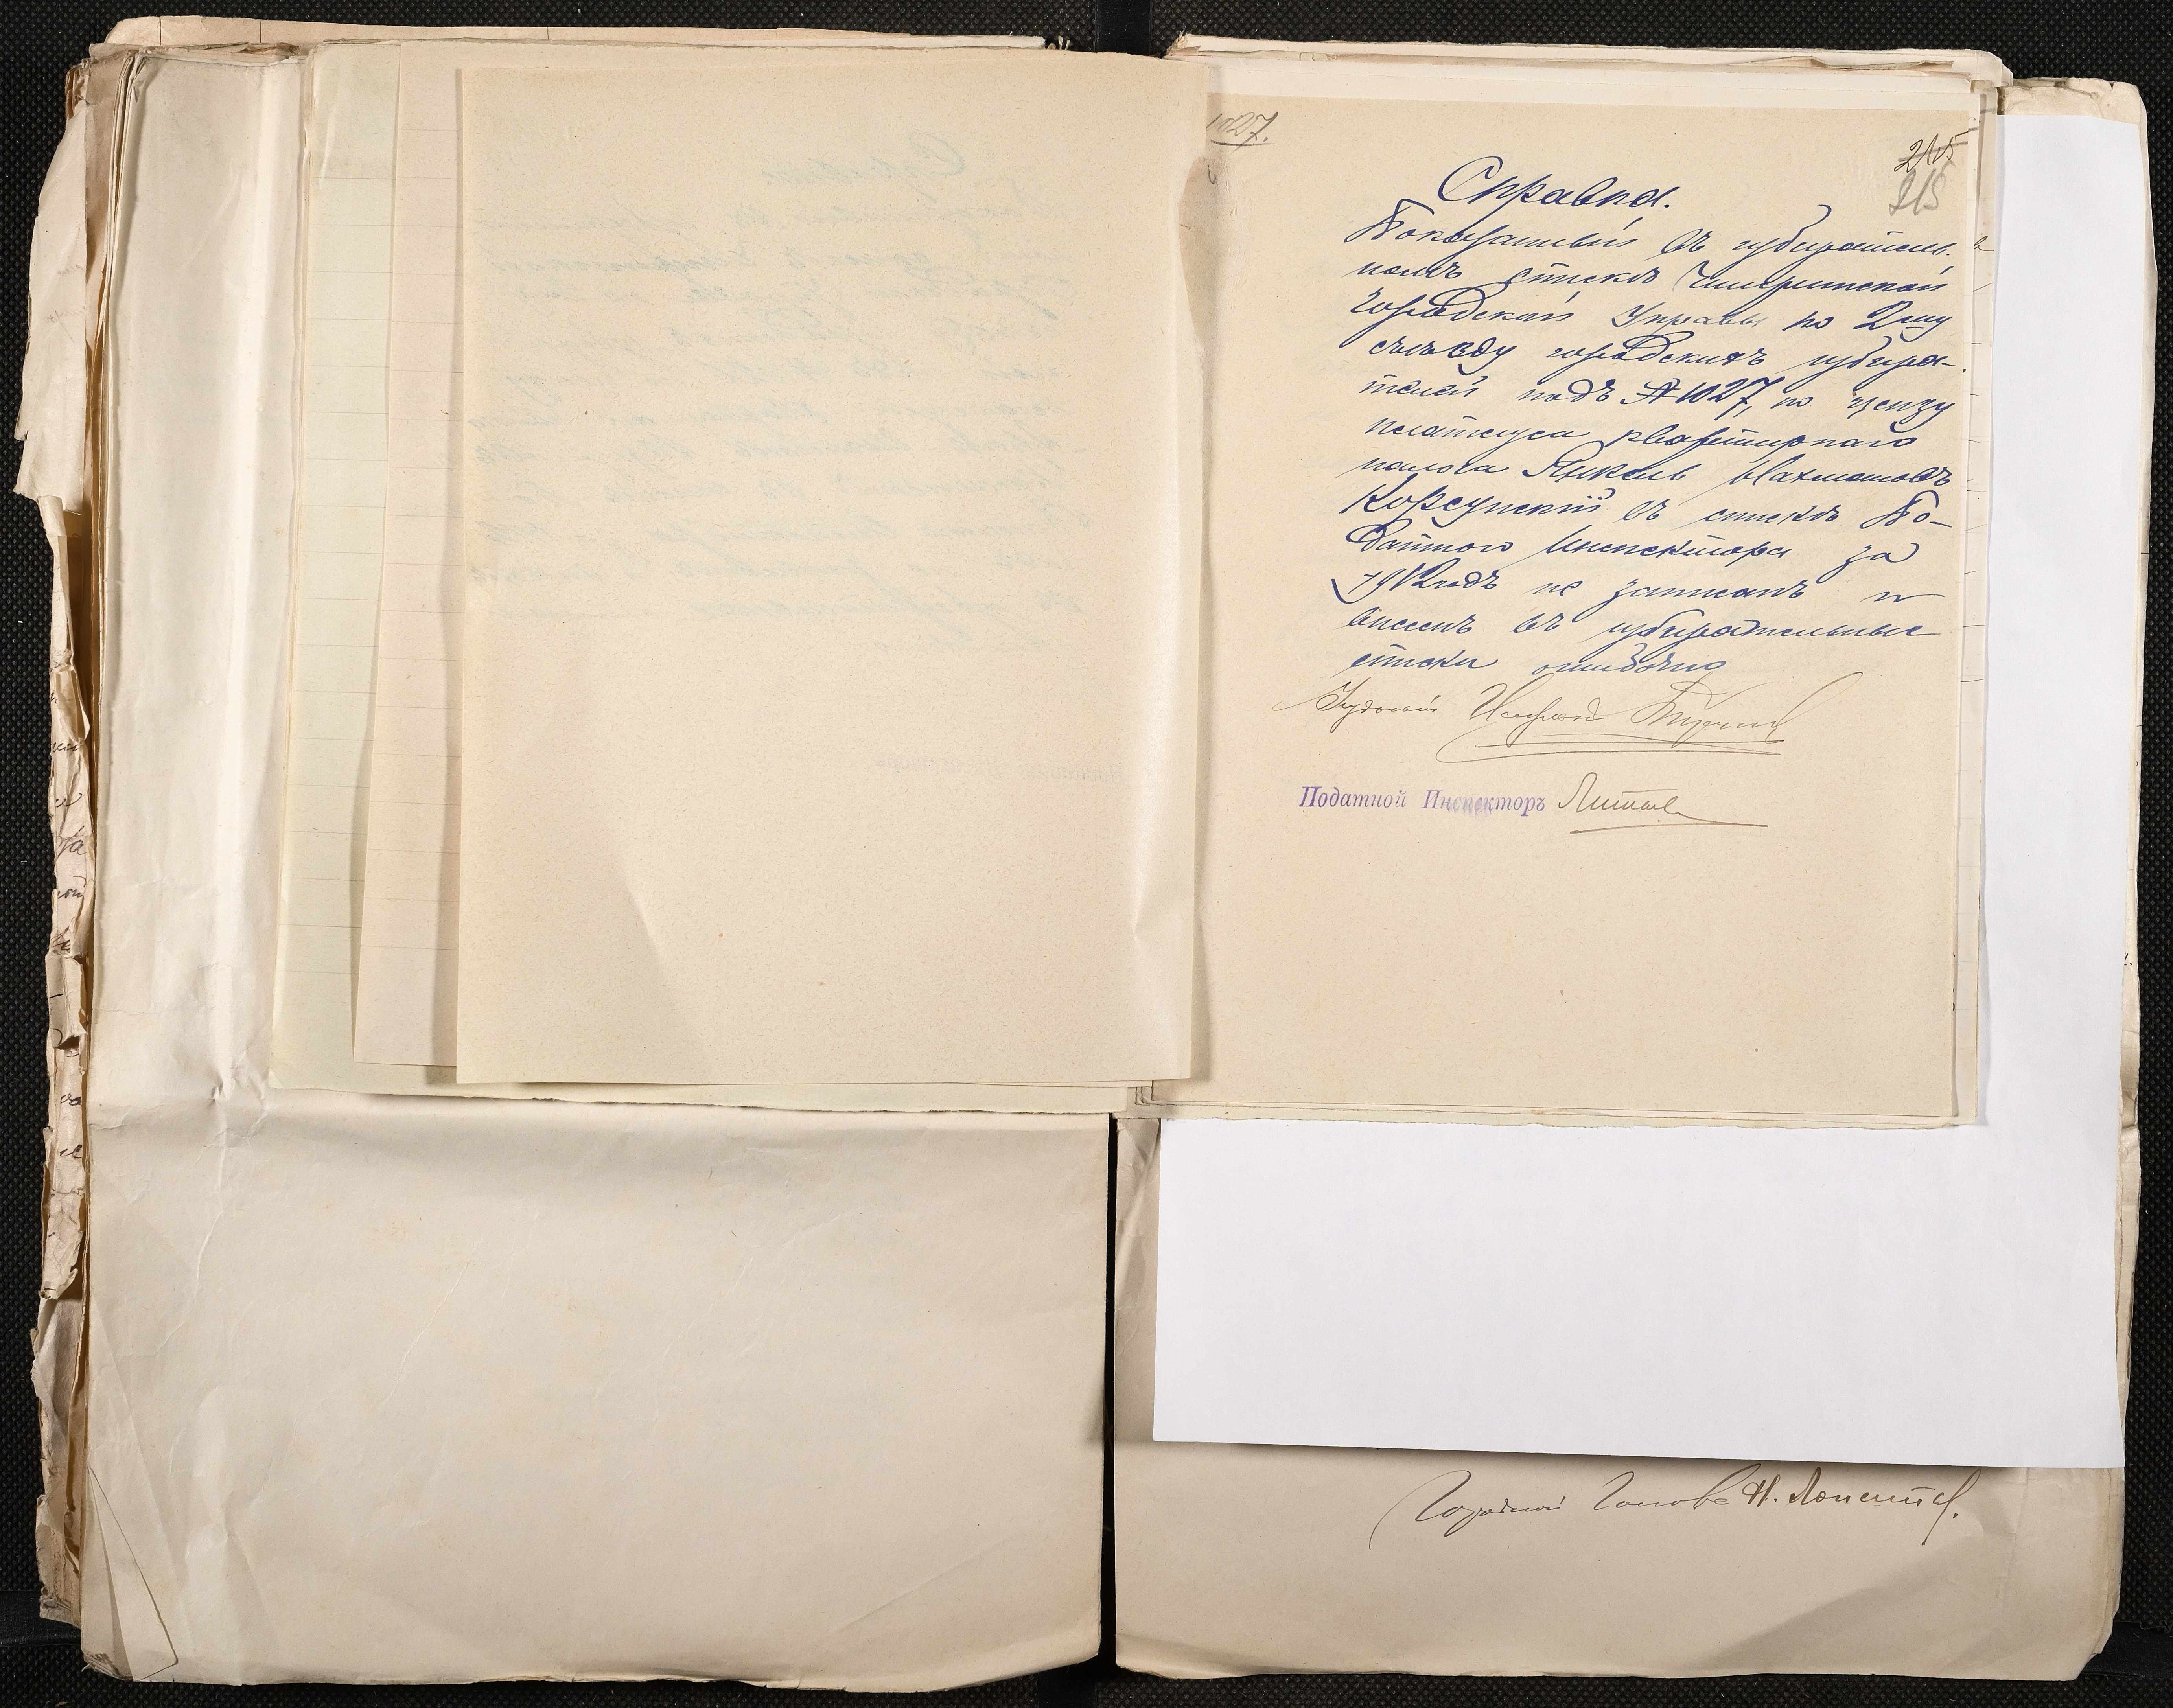 1027.
215
215
Справка.
Показанный въ избиратель-
номъ спискѣ Чигиринской
Городской Управы по 2му
съѣзду городскихъ избира-
телей подъ № 1027, по цензу
платежа квартирнаго
налога Янкель Нахмановъ
Корсунскій въ спискѣ По-
датного Инспектора за
1912 годъ не записанъ и
внесенъ въ избирательные
списки ошибочно
Податной Инспекторъ
Городской Голова Н.